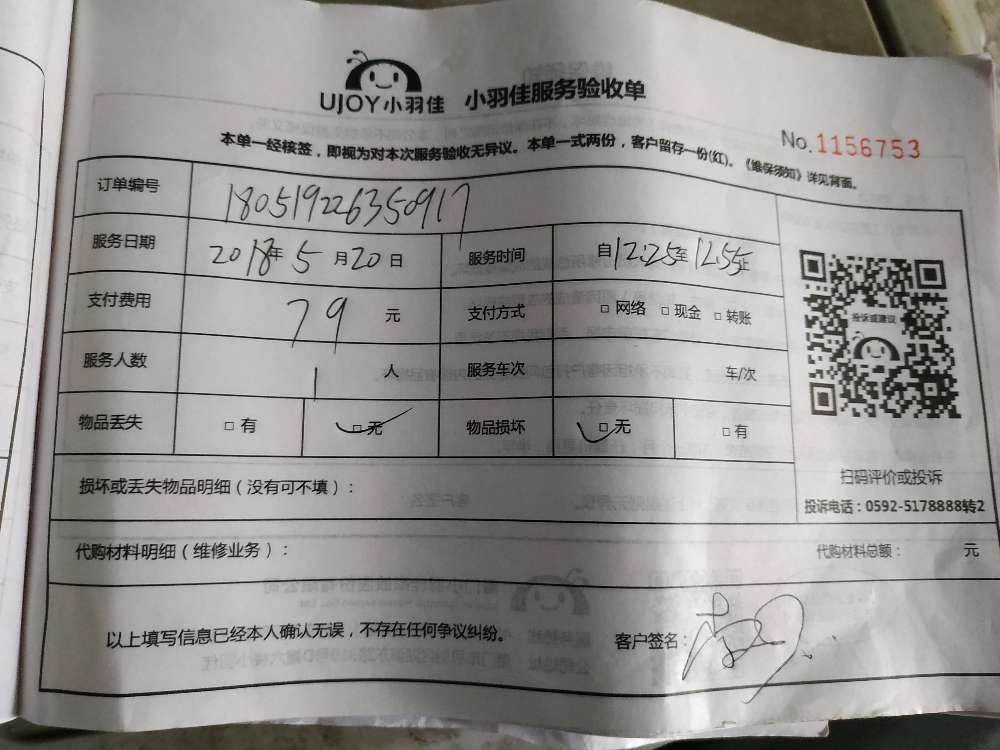 UJOY小羽佳 小羽佳服务验收单
No.1156753
本单一经核签，即视为对本次服务验收无异议。本单一式两份，客户留存一份(红)。《维保须知》详见背面。
订单编号 180519226350917
服务日期 2018年5月20日 服务时间 自12:25至12:55止
支付费用 79 元 支付方式 □ 网络 □ 现金 □ 转账
服务人数 1 人 服务车次 车/次
物品丢失 □ 有 ✓□ 无 物品损坏 ✓□ 无 □ 有
投诉或建议
扫码评价或投诉
投诉电话：0592-5178888转2
损坏或丢失物品明细（没有可不填）：
代购材料明细（维修业务）： 代购材料总额： 元
以上填写信息已经本人确认无误，不存在任何争议纠纷。 客户签名：